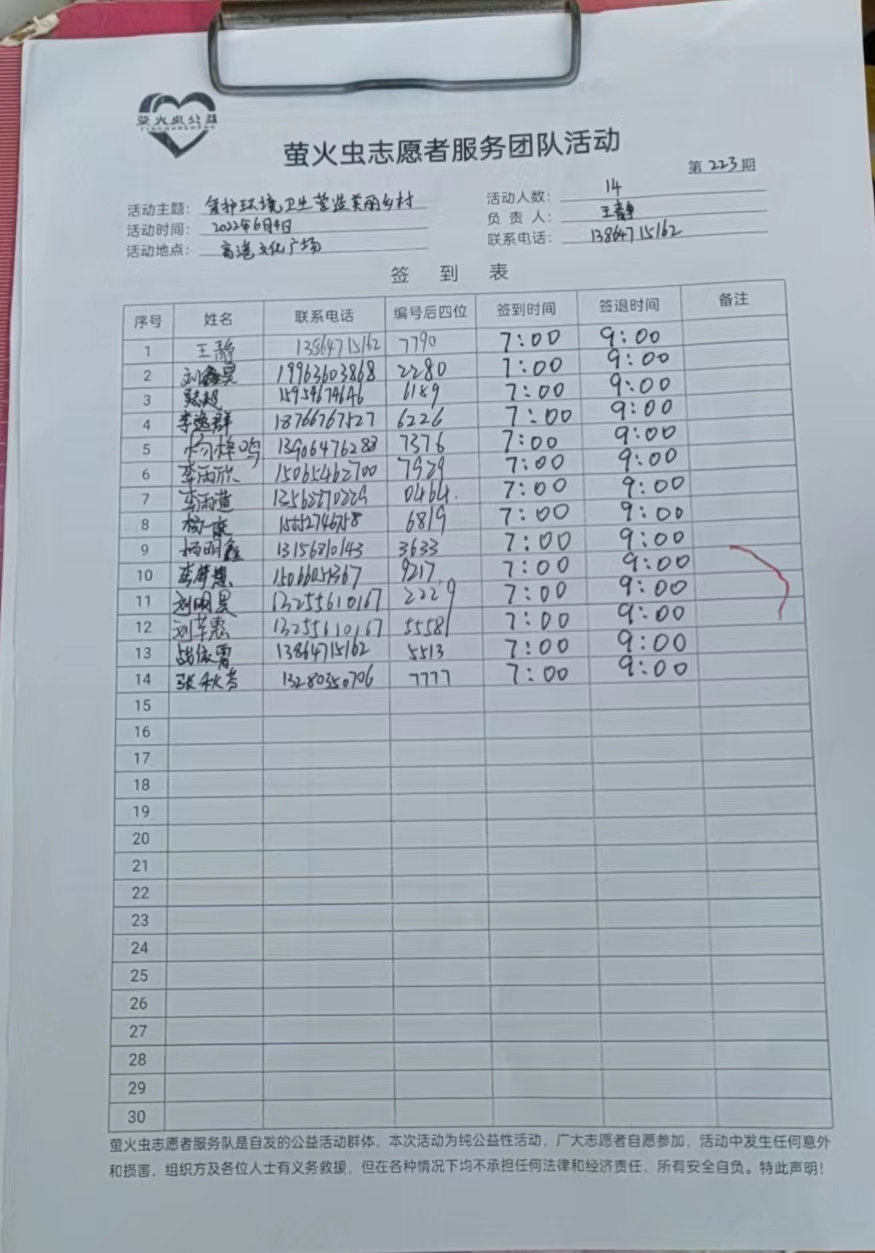 萤火虫公益
萤火虫志愿者服务团队活动
第 223 期
活动主题: 环境卫生营造美丽乡村
活动时间: 2022年6月4日
活动地点: 文化广场
活动人数: 14
负 责 人: 王静
联系电话: 13864715162
签 到 表
序号 姓名 联系电话 编号后四位 签到时间 签退时间 备注
1 王静 13864715162 7790 7:00 9:00
2 刘鑫昊 19963603868 2280 7:00 9:00
3 15954674646 6189 7:00 9:00
4 李逸群 18766767527 6226 7:00 9:00
5 13906476288 7376 7:00 9:00
6 李雨欣 15065462700 7929 7:00 9:00
7 0464. 7:00 9:00
8 6819 7:00 9:00
9 杨明鑫 3633 7:00 9:00
10 李梦慧 15066051367 9217 7:00 9:00
11 刘明昊 13255610167 2229 7:00 9:00
12 13255610167 5558 7:00 9:00
13 13864715162 5513 7:00 9:00
14 张秋芳 13280350706 7777 7:00 9:00
15
16
17
18
19
20
21
22
23
24
25
26
27
28
29
30
萤火虫志愿者服务队是自发的公益活动群体，本次活动为纯公益性活动，广大志愿者自愿参加，活动中发生任何意外
和损害，组织方及各位人士有义务救援，但在各种情况下均不承担任何法律和经济责任，所有安全自负。特此声明！